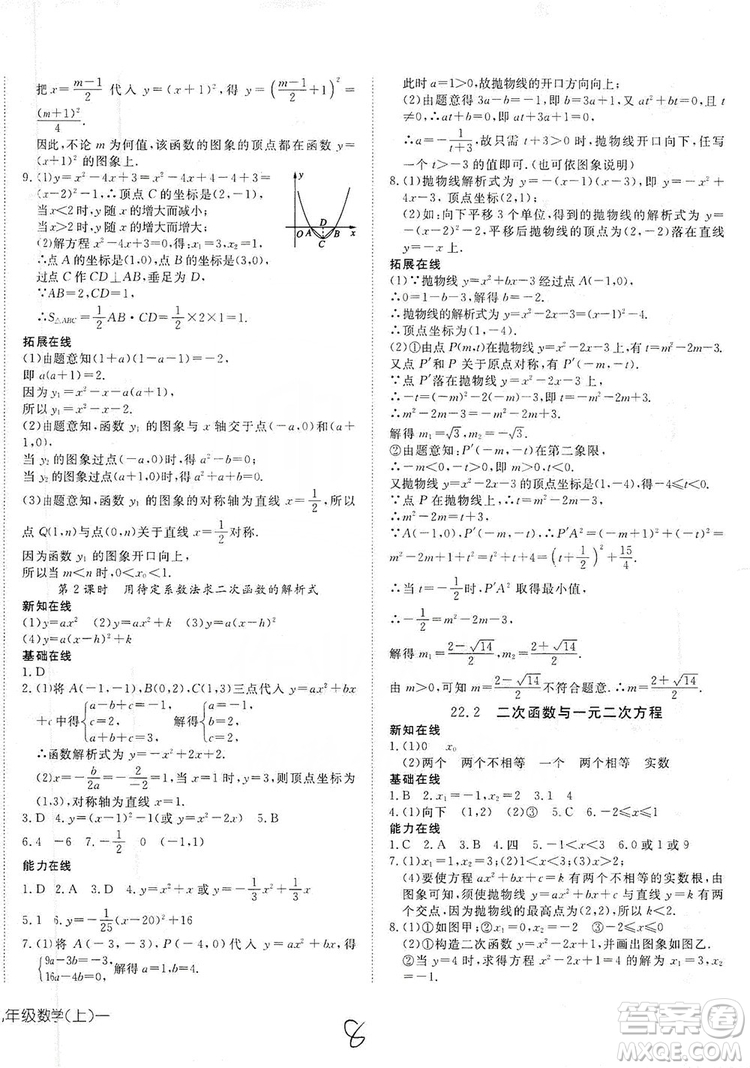 把 x=(m-1)/2 代入 y=(x+1)²,得 y=((m-1)/2+1)²=
(m+1)²/4.
因此,不论 m 为何值,该函数的图象的顶点都在函数 y=
(x+1)² 的图象上.
9.(1)y=x²-4x+3=x²-4x+4-4+3=
(x-2)²-1,∴顶点 C 的坐标是(2,-1),
当 x<2 时,y 随 x 的增大而减小,
当 x>2 时,y 随 x 的增大而增大.
(2)解方程 x²-4x+3=0 得:x₁=3,x₂=1.
∴点 A 的坐标是(1,0),点 B 的坐标是(3,0),
过点 C 作 CD⊥AB,垂足为 D,
∵AB=2,CD=1,
∴S△ABC=1/2 AB·CD=1/2×2×1=1.
y
O A D B x
C
拓展在线
(1)由题意知(1+a)(1-a-1)=-2.
即 a(a+1)=2.
因为 y₁=x²-x-a²-a,
所以 y₁=x²-x-2.
(2)由题意知,函数 y₁ 的图象与 x 轴交于点(-a,0)和(a
+1,0),
当 y₂ 的图象过点(-a,0)时,得 a²-b=0;
当 y₂ 的图象过点(a+1,0)时,得 a²+a+b=0.
(3)由题意知,函数 y₁ 的图象的对称轴为直线 x=1/2,所以
点 Q(1,n)与点(0,n)关于直线 x=1/2 对称.
因为函数 y₁ 的图象开口向上,
所以当 m<n 时,0<x₀<1.
第 2 课时 用待定系数法求二次函数的解析式
新知在线
(1)y=ax² (2)y=ax²+k (3)y=a(x-h)²
(4)y=a(x-h)²+k
基础在线
1.D
2.(1)将 A(-1,-1),B(0,2),C(1,3)三点代入 y=ax²+bx
+c 中得{a-b+c=-1, c=2, a+b+c=3. 解得{a=-1, b=2, c=2.
∴函数解析式为 y=-x²+2x+2.
(2)x=-b/2a=-2/(2×(-1))=1,当 x=1 时,y=3,∴顶点坐标为
(1,3),对称轴为直线 x=1.
3.D 4.y=(x-1)²-1(或 y=x²-2x) 5.B
6.4 -6 7.-1/2 0 (-1,1)
能力在线
1.D 2.A 3.D 4.y=1/3x²-2/3x 或 y=-x²+1/3x
5.1 6.y=-1/25(x-20)²+16
7.(1)将 A(-3,-3),P(-4,0)代入 y=ax²+bx,得
{9a-3b=-3, 16a-4b=0. 解得{a=1, b=4. ∴y=x²+4x.
年级数学(上)一
8
此时 a=1>0,故抛物线的开口方向向上;
(2)由题意得 3a-b=1,即 b=3a-1,又 at²+bt=0,t
≠0,∴at+b=0,即 at+3a=1,
∴a=-1/(t+3),故只需 t+3<0,即 t<-3 即可,所以任写
一个 t<-3 的值即可.(也可依图象说明)
8.(1)抛物线解析式为 y=-(x-1)(x-3),即 y=-x²+
4x-3,顶点坐标为(2,1).
(2)如:向下平移 3 个单位,得到的抛物线的解析式为 y=
-(x-2)²-2,平移后抛物线的顶点为(2,-2)落在直线
y=-x 上.
拓展在线
(1)∵抛物线 y=x²+bx-3 经过点 A(-1,0),
∴0=1-b-3,解得 b=-2.
∴抛物线的解析式为 y=x²-2x-3=(x-1)²-4,
∴顶点坐标为(1,-4).
(2)①由点 P(m,t)在抛物线 y=x²-2x-3 上有 t=m²-2m-3.
又点 P′ 和 P 关于原点对称,∴P′(-m,-t).
∵点 P′ 落在抛物线 y=x²-2x-3 上,
∴-t=(-m)²-2(-m)-3,即 t=-m²-2m+3.
∴m²-2m-3=-m²-2m+3.
解得 m₁=√3,m₂=-√3.
②由题意知:P′(-m,-t)在第二象限,
∴-m<0,-t>0,即 m>0,t<0.
又抛物线 y=x²-2x-3 的顶点坐标是(1,-4)得-4≤t<0.
∵P 在抛物线上,∴t=m²-2m-3.
∴m²-2m=t+3.
∵A(-1,0),P′(-m,-t),∴P′A²=(-m+1)²+(-t)²=
m²-2m+1+t²=t²+t+4=(t+1/2)²+15/4.
∴当 t=-1/2 时,P′A² 取得最小值.
∴-1/2=m²-2m-3,
∴解得 m₁=(2-√14)/2,m₂=(2+√14)/2.
由 m>0,可知 m=(2-√14)/2 不合题意,∴m=(2+√14)/2.
22.2 二次函数与一元二次方程
新知在线
1.(1)0 x₀
(2)两个 两个不相等 一个 两个相等 实数
基础在线
1.B 2.x₁=1,x₂=2 3.1 4
4.(1)向下 (1,4) (2)0(答案不唯一) 5.-2≤x≤1
能力在线
1.D 2.D 3.B 4.四 5.-1<x<3 6.-1 或 2 或 1 或 9
7.(1)x₁=1,x₂=3 (2)1<x<3 (3)x>2
(4)要使方程 ax²+bx+c=k 有两个不相等的实数根,由
图象可知,须使抛物线 y=ax²+bx+c 与直线 y=k 有两
个交点,因为抛物线的最高点为(2,2),所以 k<2.
8.(1)①如图甲;②x₁=0,x₂=-2;③-2≤x≤0;
(2)①构造二次函数 y=x²-2x+1,画出图象如图乙;
②当 y=4 时,方程 x²-2x+1=4 的解为 x₁=3,x₂=
-1.